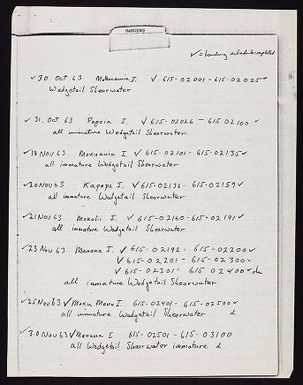 BANDING
✓ = banding schedule completed
✓ 30 Oct 63 Mokumanu I. ✓ 615-02001 - 615-02025 ✓
Wedgetail Shearwater
✓ 31 Oct 63 Popoia I. ✓ 615-02026 - 615-02100 ✓
all immature Wedgetail Shearwater
✓ 18 Nov 63 Mokumanu I. ✓ 615-02101 - 615-02135 ✓
all immature Wedgetail Shearwater
✓ 20 Nov 63 Kapapa I. ✓ 615-02136 - 615-02159 ✓
all immature Wedgetail Shearwater
✓ 21 Nov 63 Mokolii I. ✓ 615-02160 - 615-02191 ✓
all immature Wedgetail Shearwater
✓ 23 Nov 63 Manana I. ✓ 615-02192 - 615-02200 ✓
✓ 615-02201 - 615-02300 ✓
✓ 615-02301 - 615-02400 ✓
all immature Wedgetail Shearwater
✓ 25 Nov 63 ✓ Moku Manu I. ✓ 615-02401 - 615-02500 ✓
all immature Wedgetail Shearwater
✓ 30 Nov 63 ✓ Manana I 615-02501 - 615-03100
all Wedgetail Shearwater immature